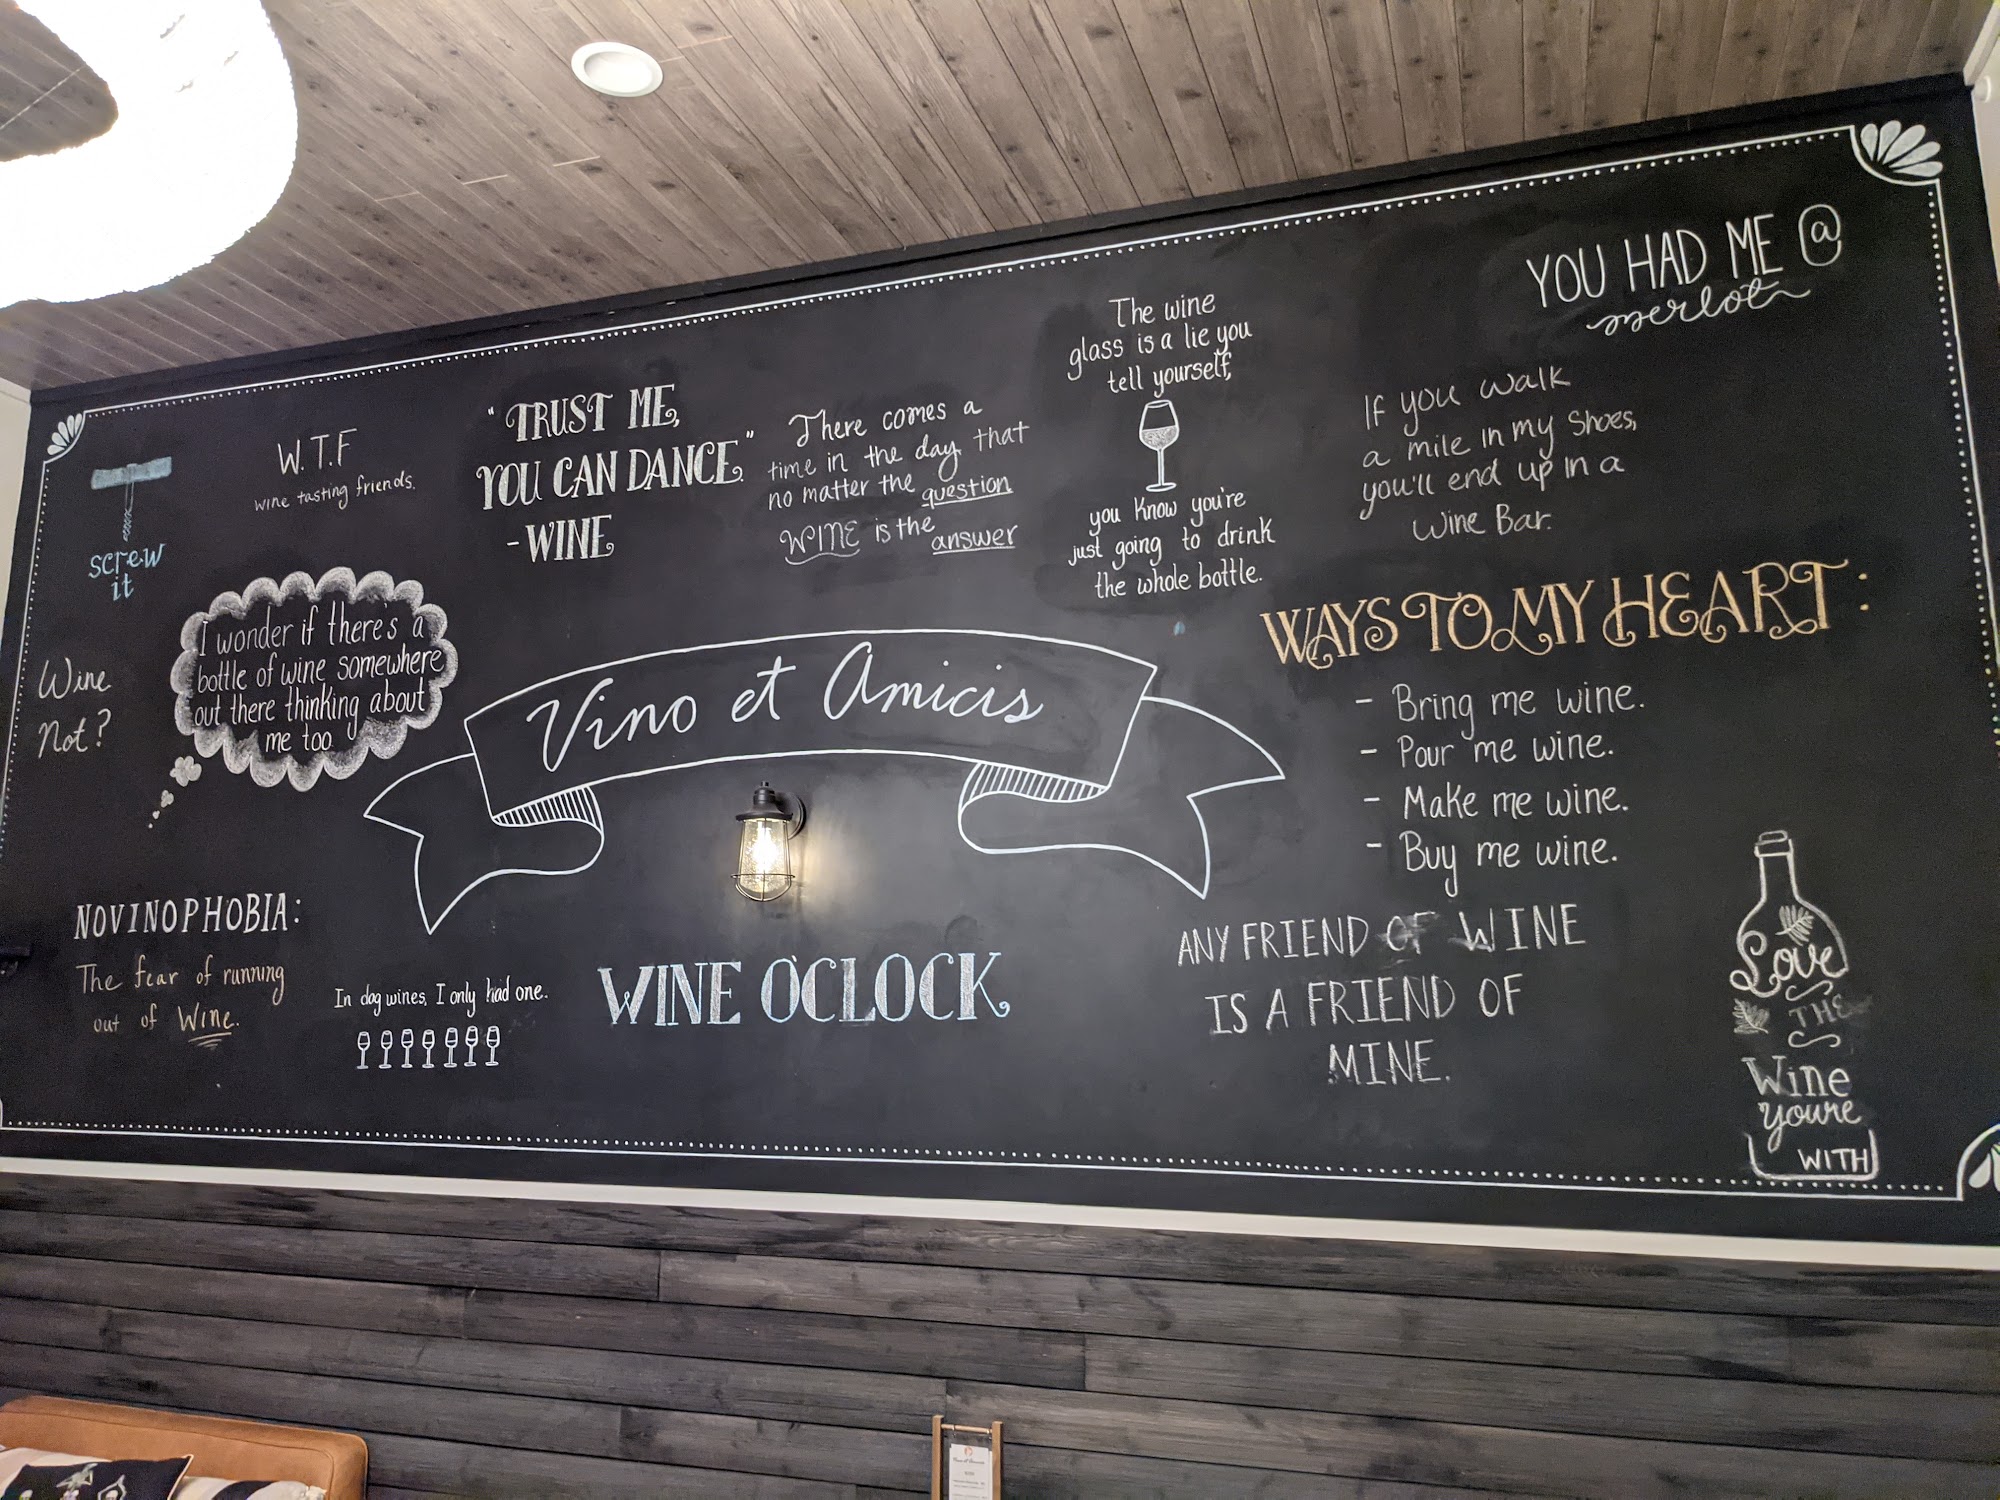 YOU HAD ME @
merlot
The wine
glass is a lie you
tell yourself,
you know you're
just going to drink
the whole bottle.
If you walk
a mile in my shoes,
you'll end up in a
Wine Bar.
"TRUST ME,
YOU CAN DANCE."
-WINE
There comes a
time in the day that
no matter the question
WINE is the answer
W.T.F
wine tasting friends.
screw
it
I wonder if there's a
bottle of wine somewhere
out there thinking about
me too
Wine
Not?
Vino et Amicis
WAYS TO MY HEART:
- Bring me wine.
- Pour me wine.
- Make me wine.
- Buy me wine.
NOVINOPHOBIA:
The fear of running
out of Wine.
In dog wines, I only had one.
WINE O'CLOCK
ANY FRIEND OF WINE
IS A FRIEND OF
MINE.
Love
THE
Wine
you're
WITH
Vino et Amicis